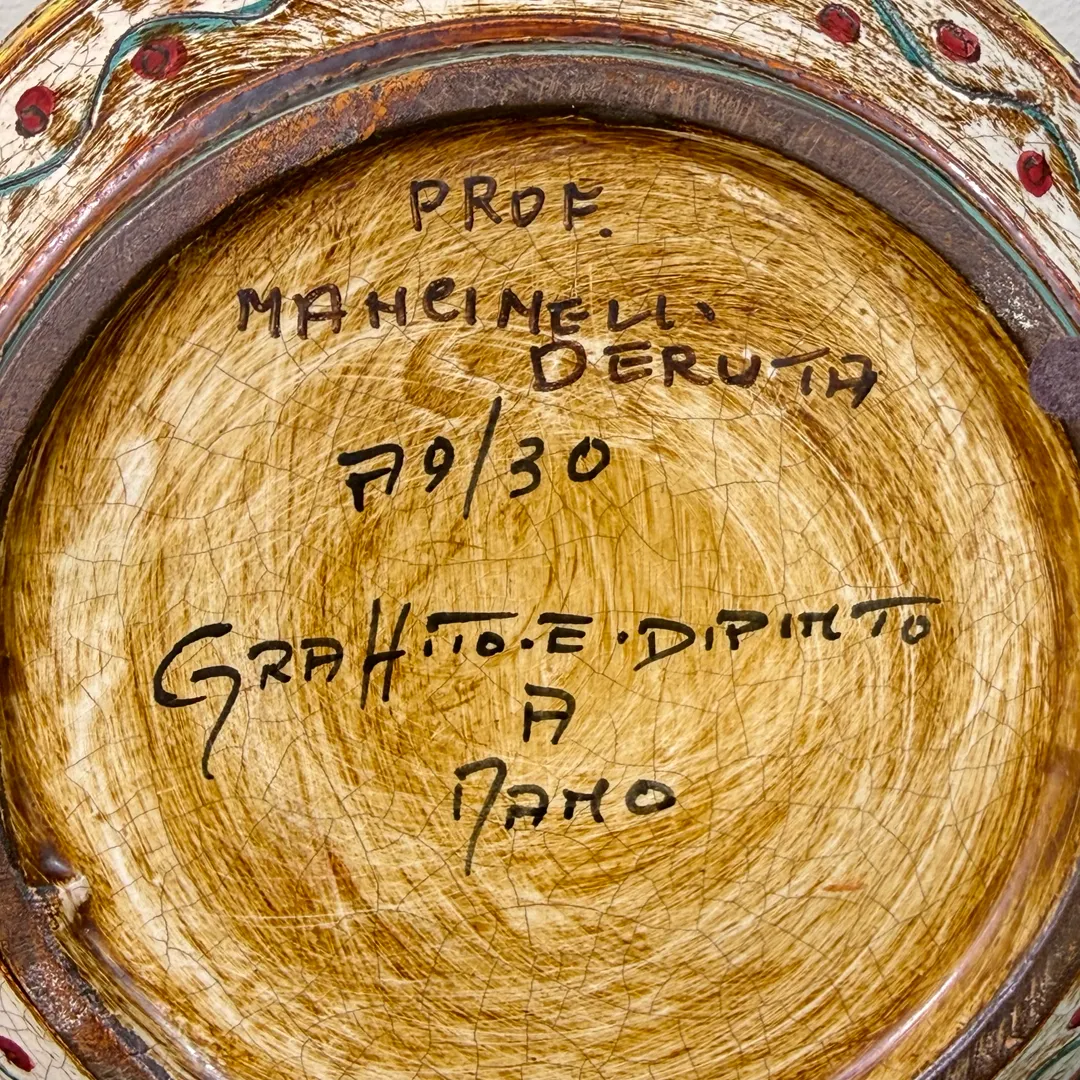 PROF.
MANCINELLI.
DERUTA
A9/30
GRAFFITO·E·DIPINTO
A
MANO